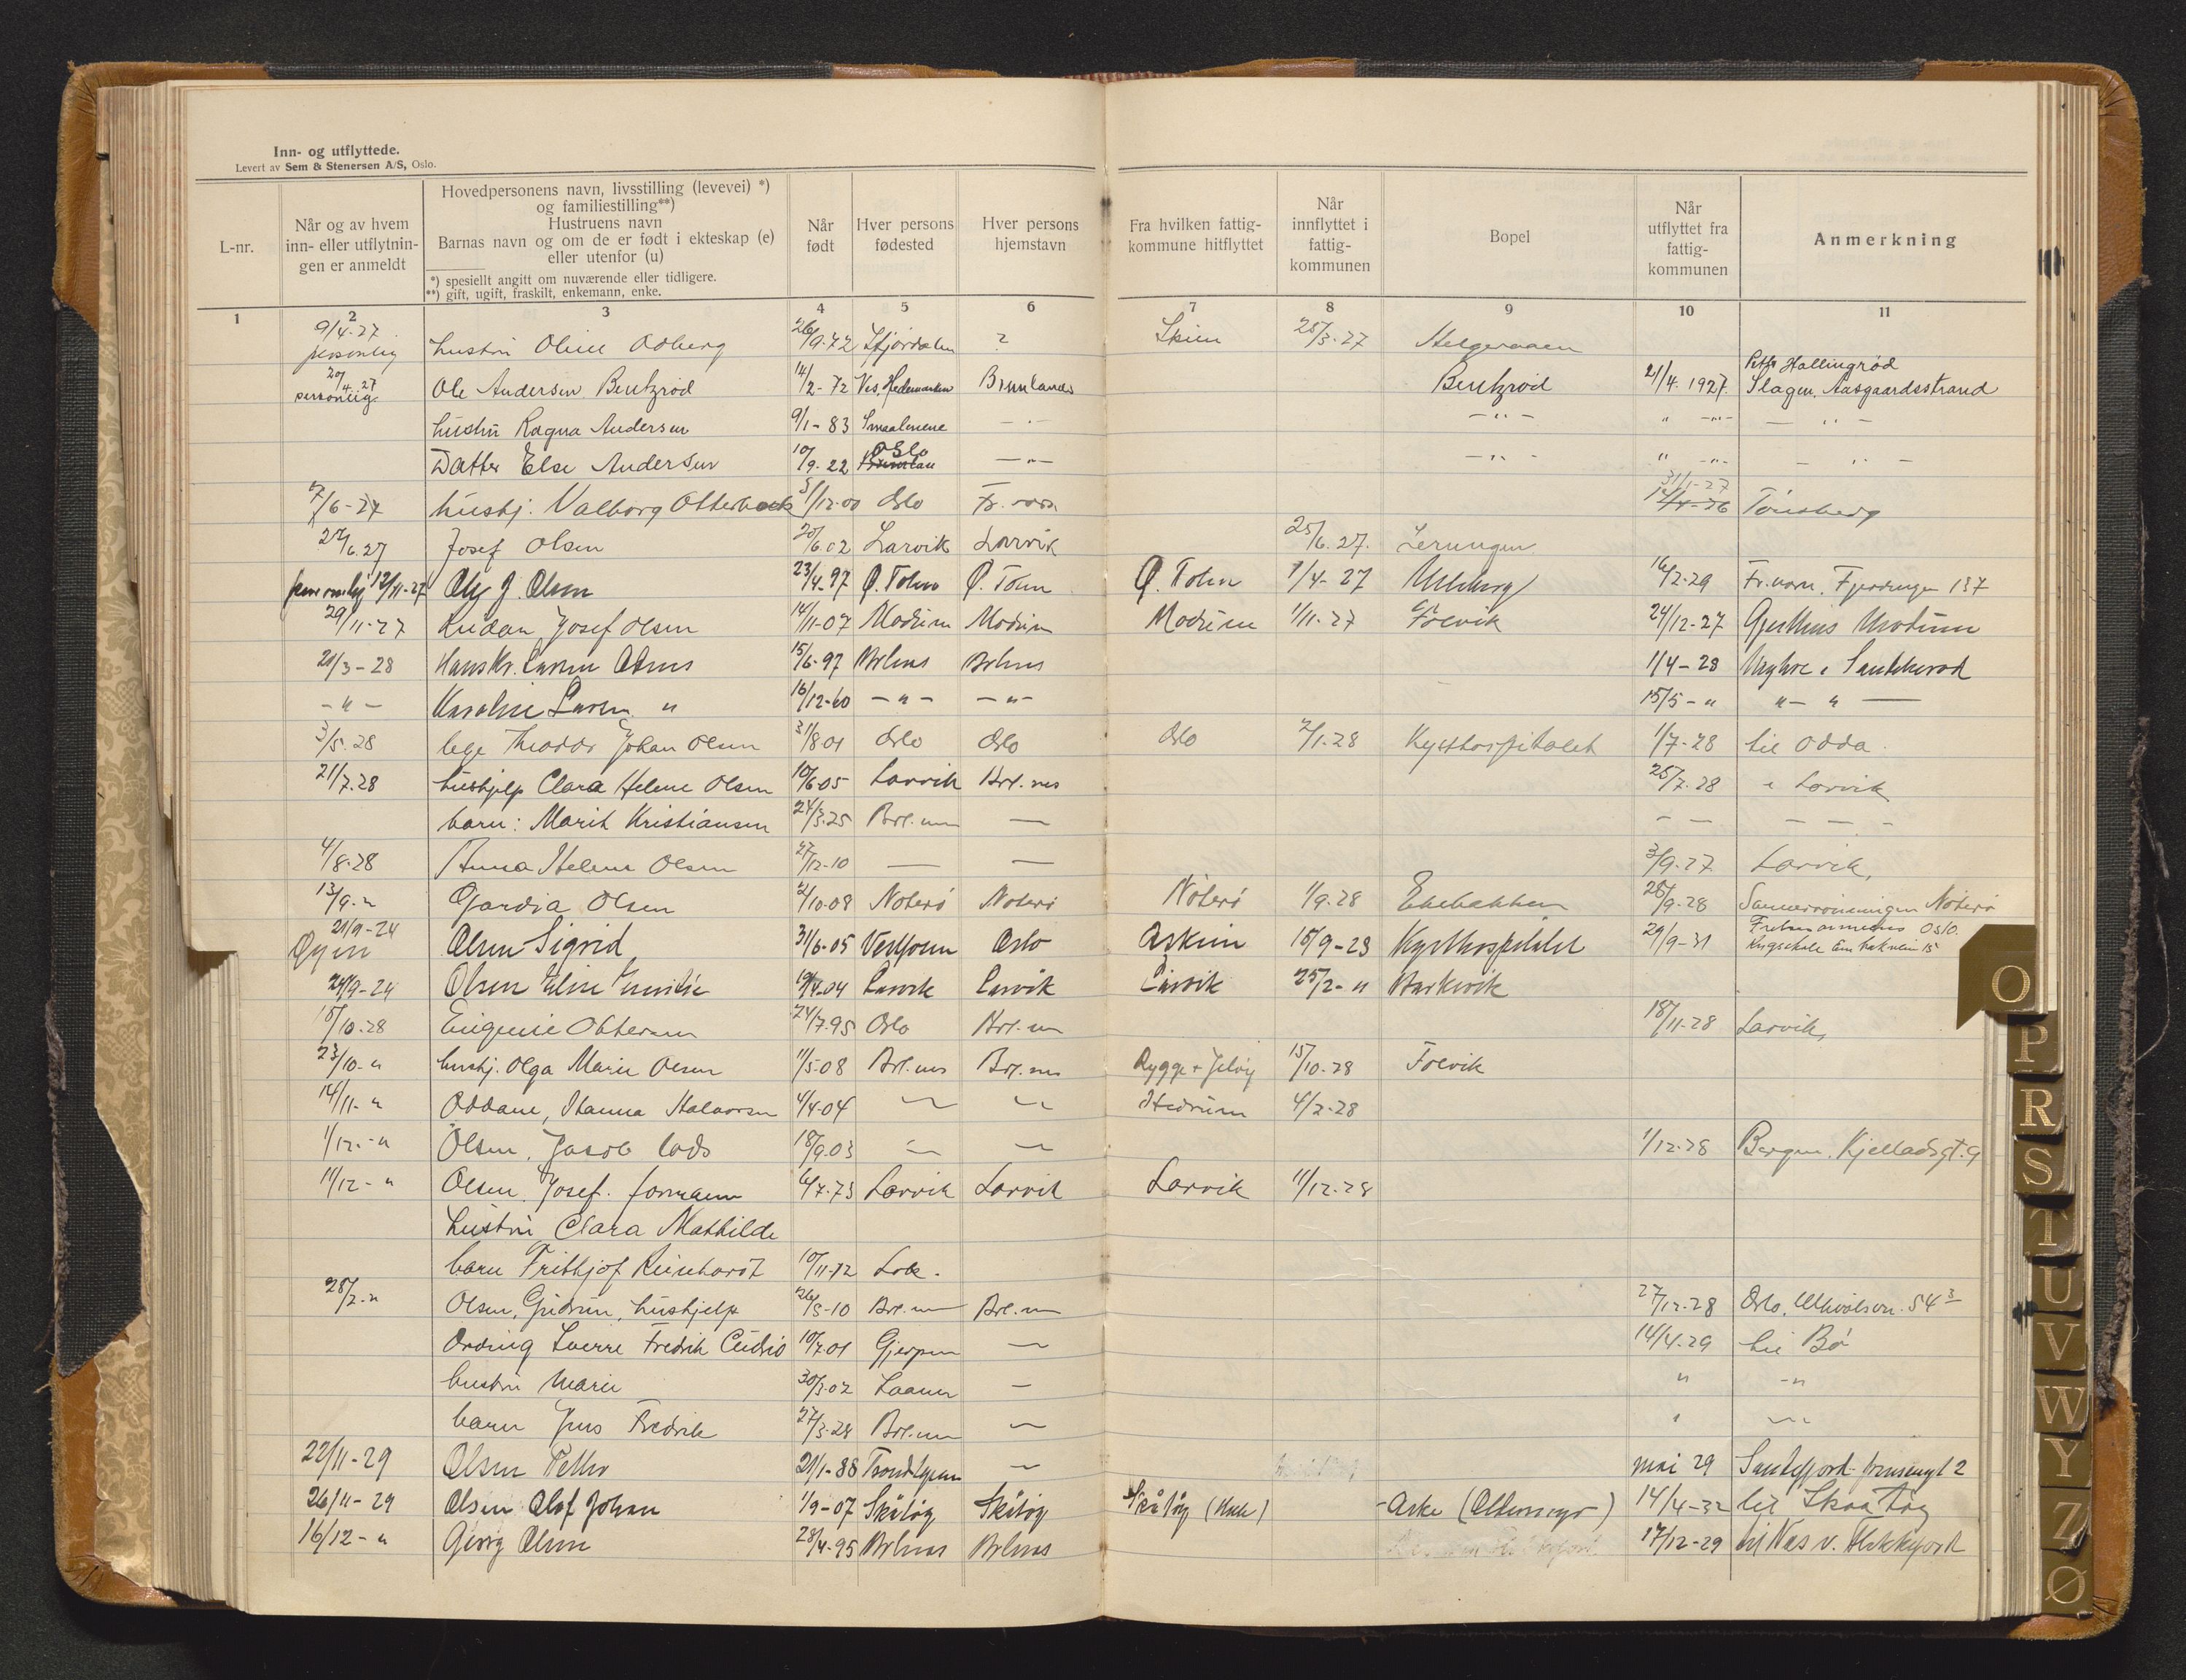 Inn- og utflyttede.
Levert av Sem & Stenersen A/S, Oslo.
L-nr.
Når og av hvem
inn- eller utflytnin-
gen er anmeldt
Hovedpersonens navn, livsstilling (levevei) *)
og familiestilling**)
Hustruens navn
Barnas navn og om de er født i ekteskap (e)
eller utenfor (u)
*) spesiellt angitt om nuværende eller tidligere.
**) gift, ugift, fraskilt, enkemann, enke.
Når
født
Hver persons
fødested
Hver persons
hjemstavn
Fra hvilken fattig-
kommune hitflyttet
Når
innflyttet i
fattig-
kommunen
Bopel
Når
utflyttet fra
fattig-
kommunen
Anmerkning
1 2 3 4 5 6 7 8 9 10 11
9/4-27 personlig hustru Oline Odberg 26/9-72 ? Skien 25/3-27 Helgeroaen
20/4 27 personlig Ole Andersen Bentzrød 14/2-72 Brunlanes Bentzrød 21/4 1927. Hallingrød
Slagen, Aasgaardsstrand
hustru Ragna Andersen 9/1-83 Smaalenene — " — — " — " — " — — " —
Datter Else Andersen 10/9-22 Oslo — " — — " — " — " — — " —
7/6-27 hushj. Valborg Otterbeck 31/12-00 Oslo Fr.værn 31/1-27 Tønsberg
27/6.27 Josef Olsen 20/6 02 Larvik Larvik 25/6.27.
personlig 12/11-27 Olsen 23/4-97 Ø. Toten Ø. Toten Ø. Toten 1/4-27 16/2-29 Fr.værn, 137
29/11-27 Josef Olsen 14/11-07 Modum Modum Modum 1/11-27 Foevik 24/12-27 Modum
20/3-28 Hans Kr. Larsen 15/6-97 Brlnes Brlnes 1/4-28
— " — Karoline Larsen " 16/12-60 — " — — " — 15/5- " " — " —
3/5.28 lege Theodor Johan Olsen 31/8 01 Oslo Oslo Oslo 2/1.28 Kysthospitalet 1/7-28 til Odda.
21/7.28 hushjelp Clara Helene Olsen 10/6-05 Larvik Brl.nes 25/7.28 Larvik
barn: Marit Kristiansen 24/3.25 Brl.nes — — — — — —
4/8-28 Anna Helene Olsen 27/12-10 — — 3/9.27 Larvik,
13/9- " Olsen 2/10-08 Nøterø Nøterø Nøterø 1/9.28 Ekebakken 28/9-28 Nøterø
21/9-24 Olsen Sigrid 31/6-05 Oslo Askim 15/9-23 Kysthospitalet 29/9-31 Frelsesarmeens Oslo.
24/9-24 Olsen Elise 19/4-04 Larvik Larvik Larvik 25/2- " Barkevik
15/10.28 Eugenie Ottersen 24/7.95 Oslo Brl.nes 18/11-28 Larvik,
23/10- " hushj. Olga Marie Olsen 11/5-08 Brl.nes Brl.nes Rygge + Jeløy 15/10-28 Foevik
14/11- " Oddane, Hanna Halvorsen 4/4-04 — — Hedrum 4/2-28
1/12.- " Olsen, Jacob lods 18/9.03 — — 1/12-28 Bergen.
11/12- " Olsen, Josef. formann 6/7-73 Larvik Larvik Larvik 11/12.28
hustru Clara Mathilde
barn Frithjof Reinhardt 10/11-12
28/2- " Olsen, Gudrun, hushjelp 26/5-10 Brl.nes Brl.nes 27/12-28 Oslo, Ullevålsvn. 54
Ording Sverre Fredrik 10/7.01 Gjerpen — 14/4-29 til Bø
hustru Marie 30/3-02 — " — "
barn Jens Fredrik 27/3-28 Brl.nes —
22/11-29 Olsen Petter 21/1-88 — mai 29 Sandefjord 2
26/11-29 Olsen Olaf Johan 1/9-07 Skåtøy Skåtøy Skåtøy 14/4-32 til Skåtøy
16/12- " Georg Olsen 28/4-95 Brlnes Brlnes 17/12-29 til Nes v. Flekkefjord
O
P
R
S
T
U
V
W
Y
Z
Ø